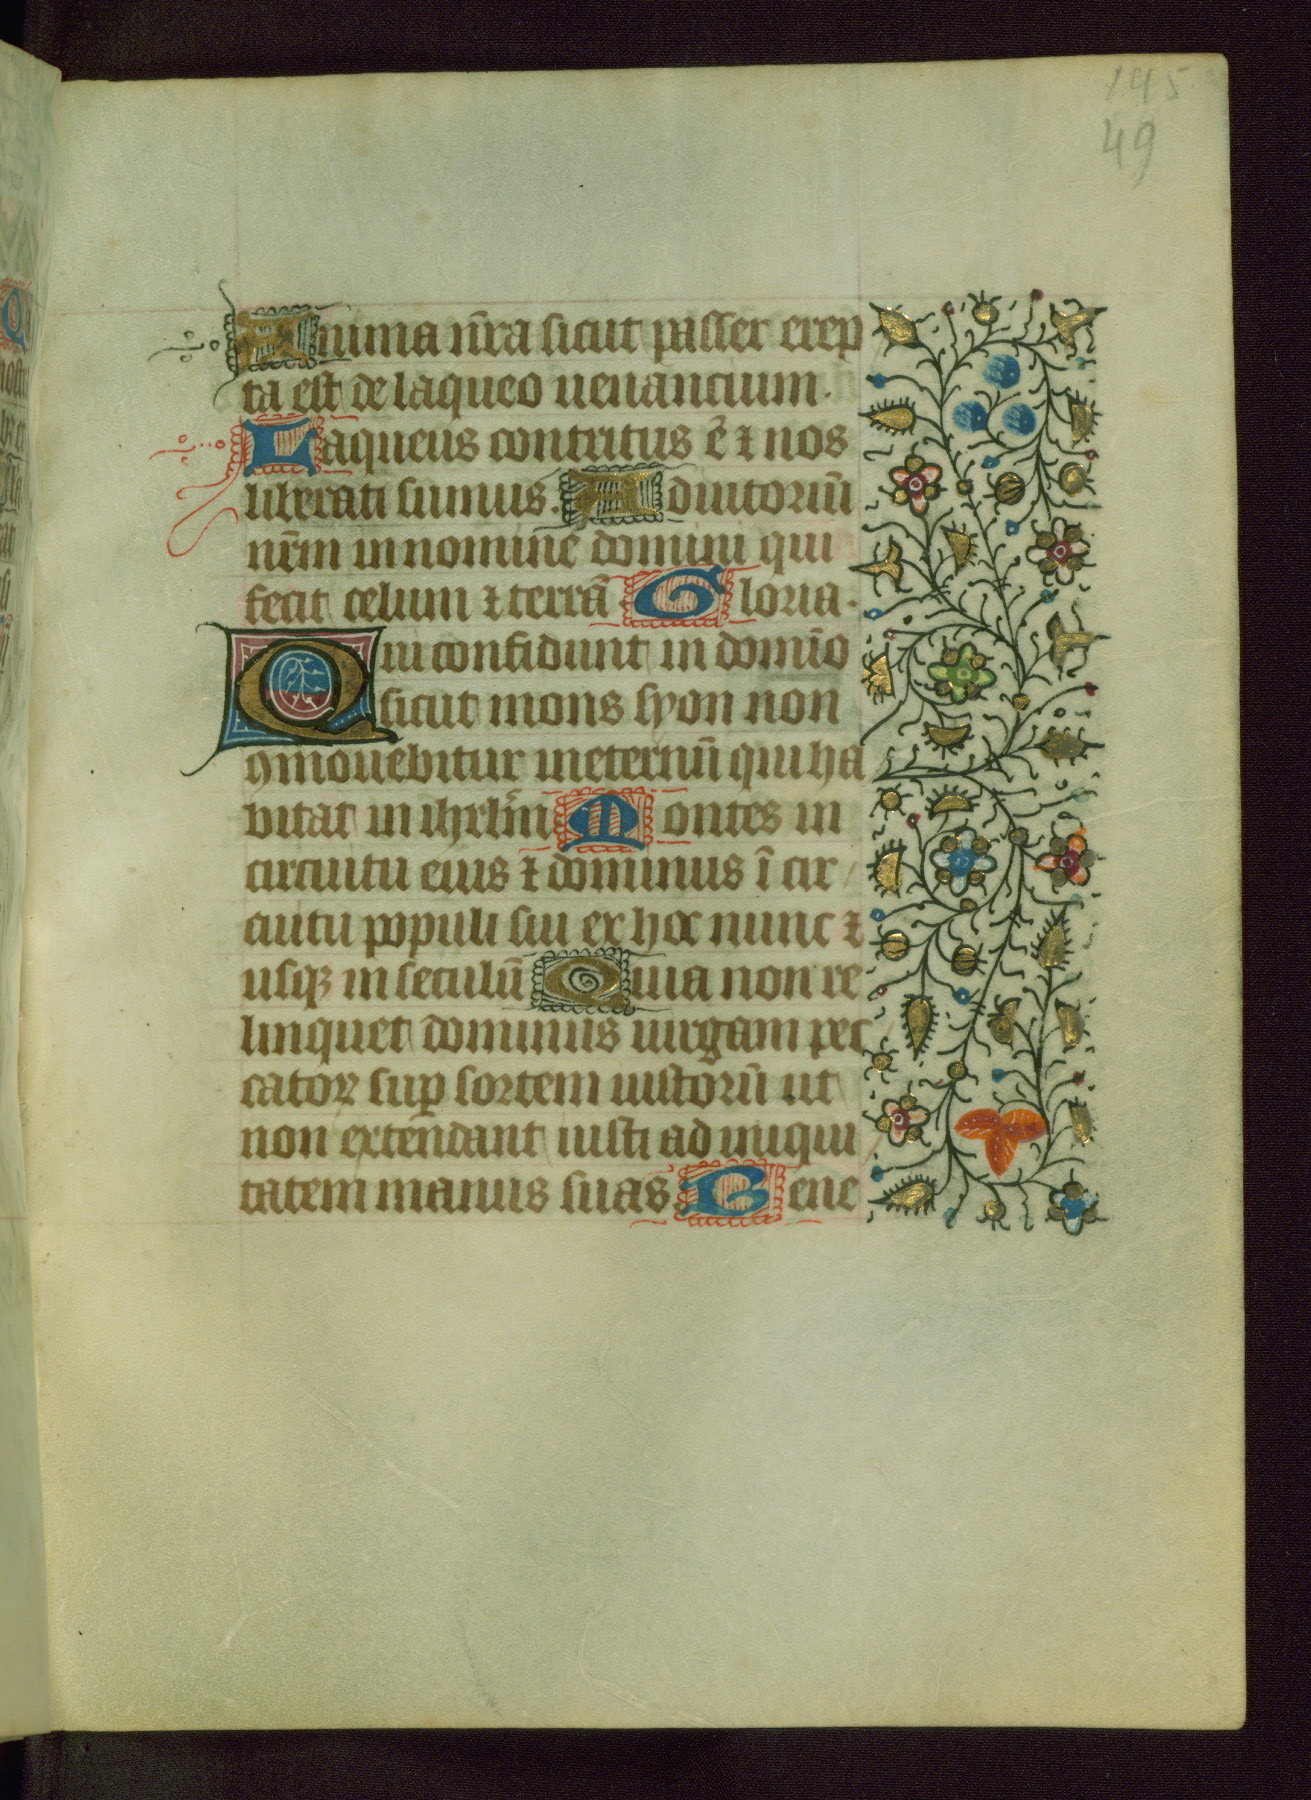 145
49
Anima nr̄a sicut passer erep
ta est de laqueo uenancium.
Laqueus contritus ē ⁊ nos
liberati sumus. Adiutoriū
nr̄m in nomine domini qui
fecit celum ⁊ terrā Gloria.
Qui confidunt in domīo
sicut mons syon non
ꝯmouebitur ineternū qui ha
bitat in ihrlm̄ Montes in
circuitu eius ⁊ dominus ī cir
cuitu populi sui ex hoc nunc ⁊
usqꝫ in seculū Quia non re
linquet dominus uirgam pec
catoꝝ suꝑ sortem iustorū ut
non extendant iusti ad iniqui
tatem manus suas Bene